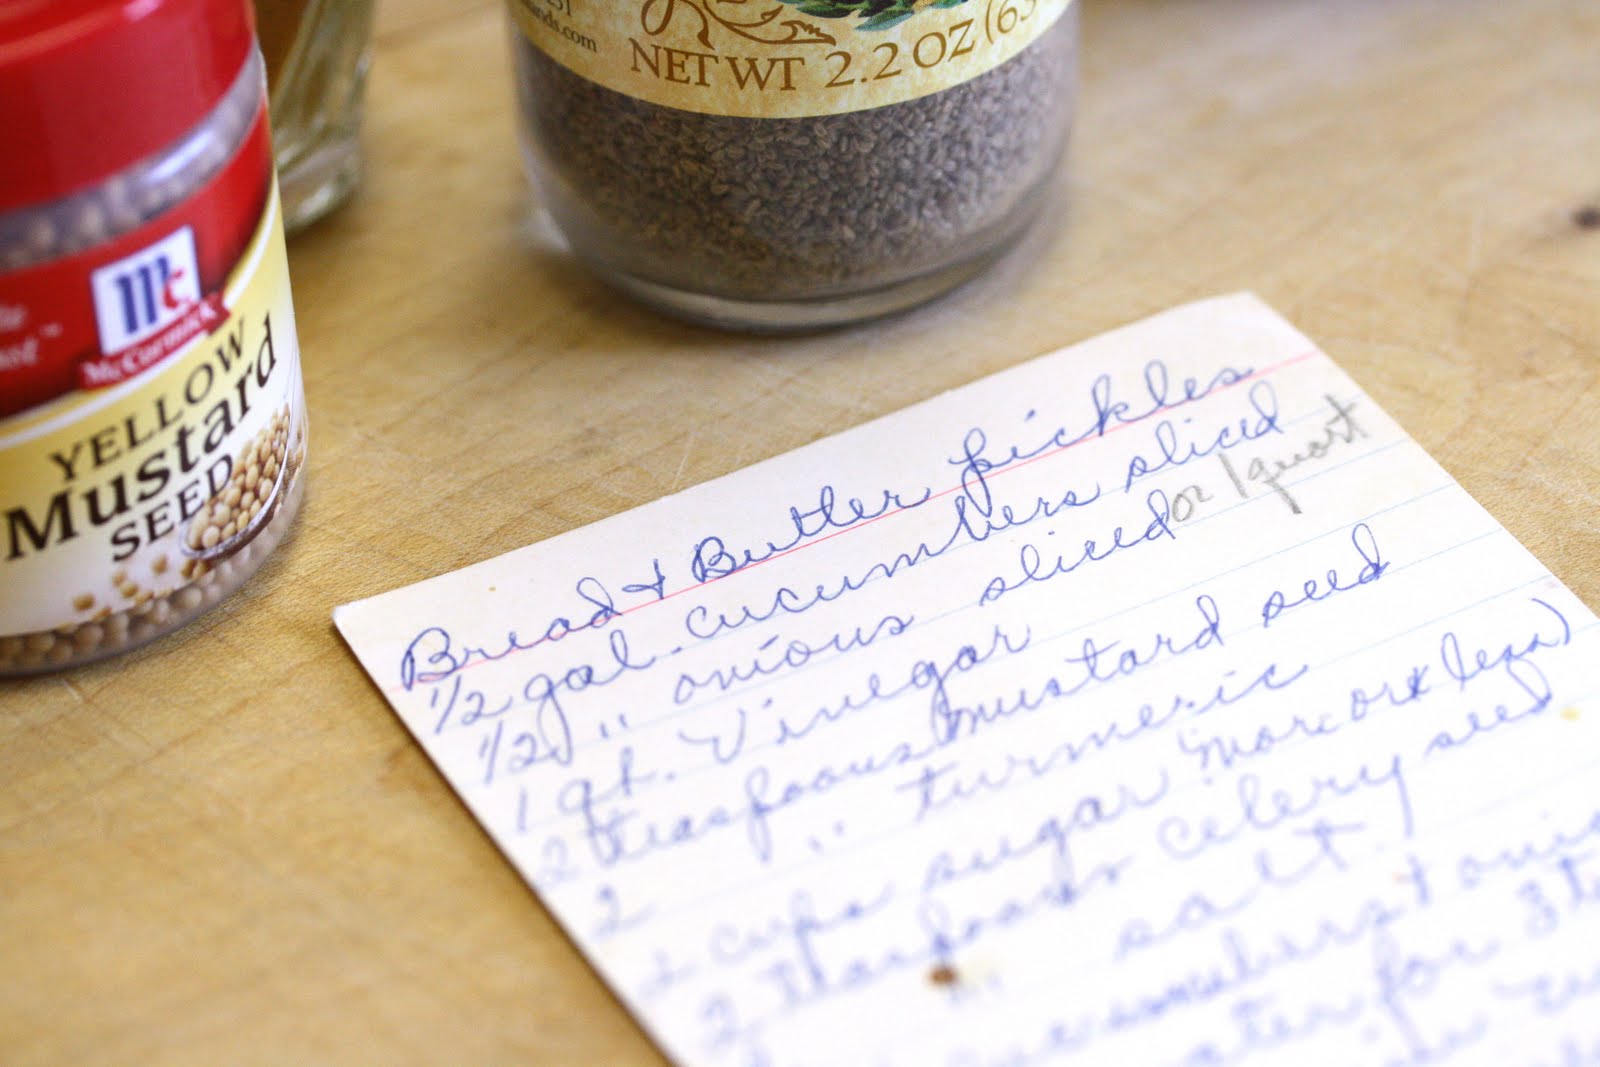 McCormick
YELLOW
Mustard
SEED
NET WT 2.2 OZ (63
Bread & Butter pickles
1/2 gal. cucumbers sliced
1/2 " onions sliced or 1 quart
1 qt. Vinegar
2 teaspoons mustard seed
2 " turmeric
cups sugar (more or less)
2 teaspoons celery seed
" salt
cucumbers & onio
water for 3